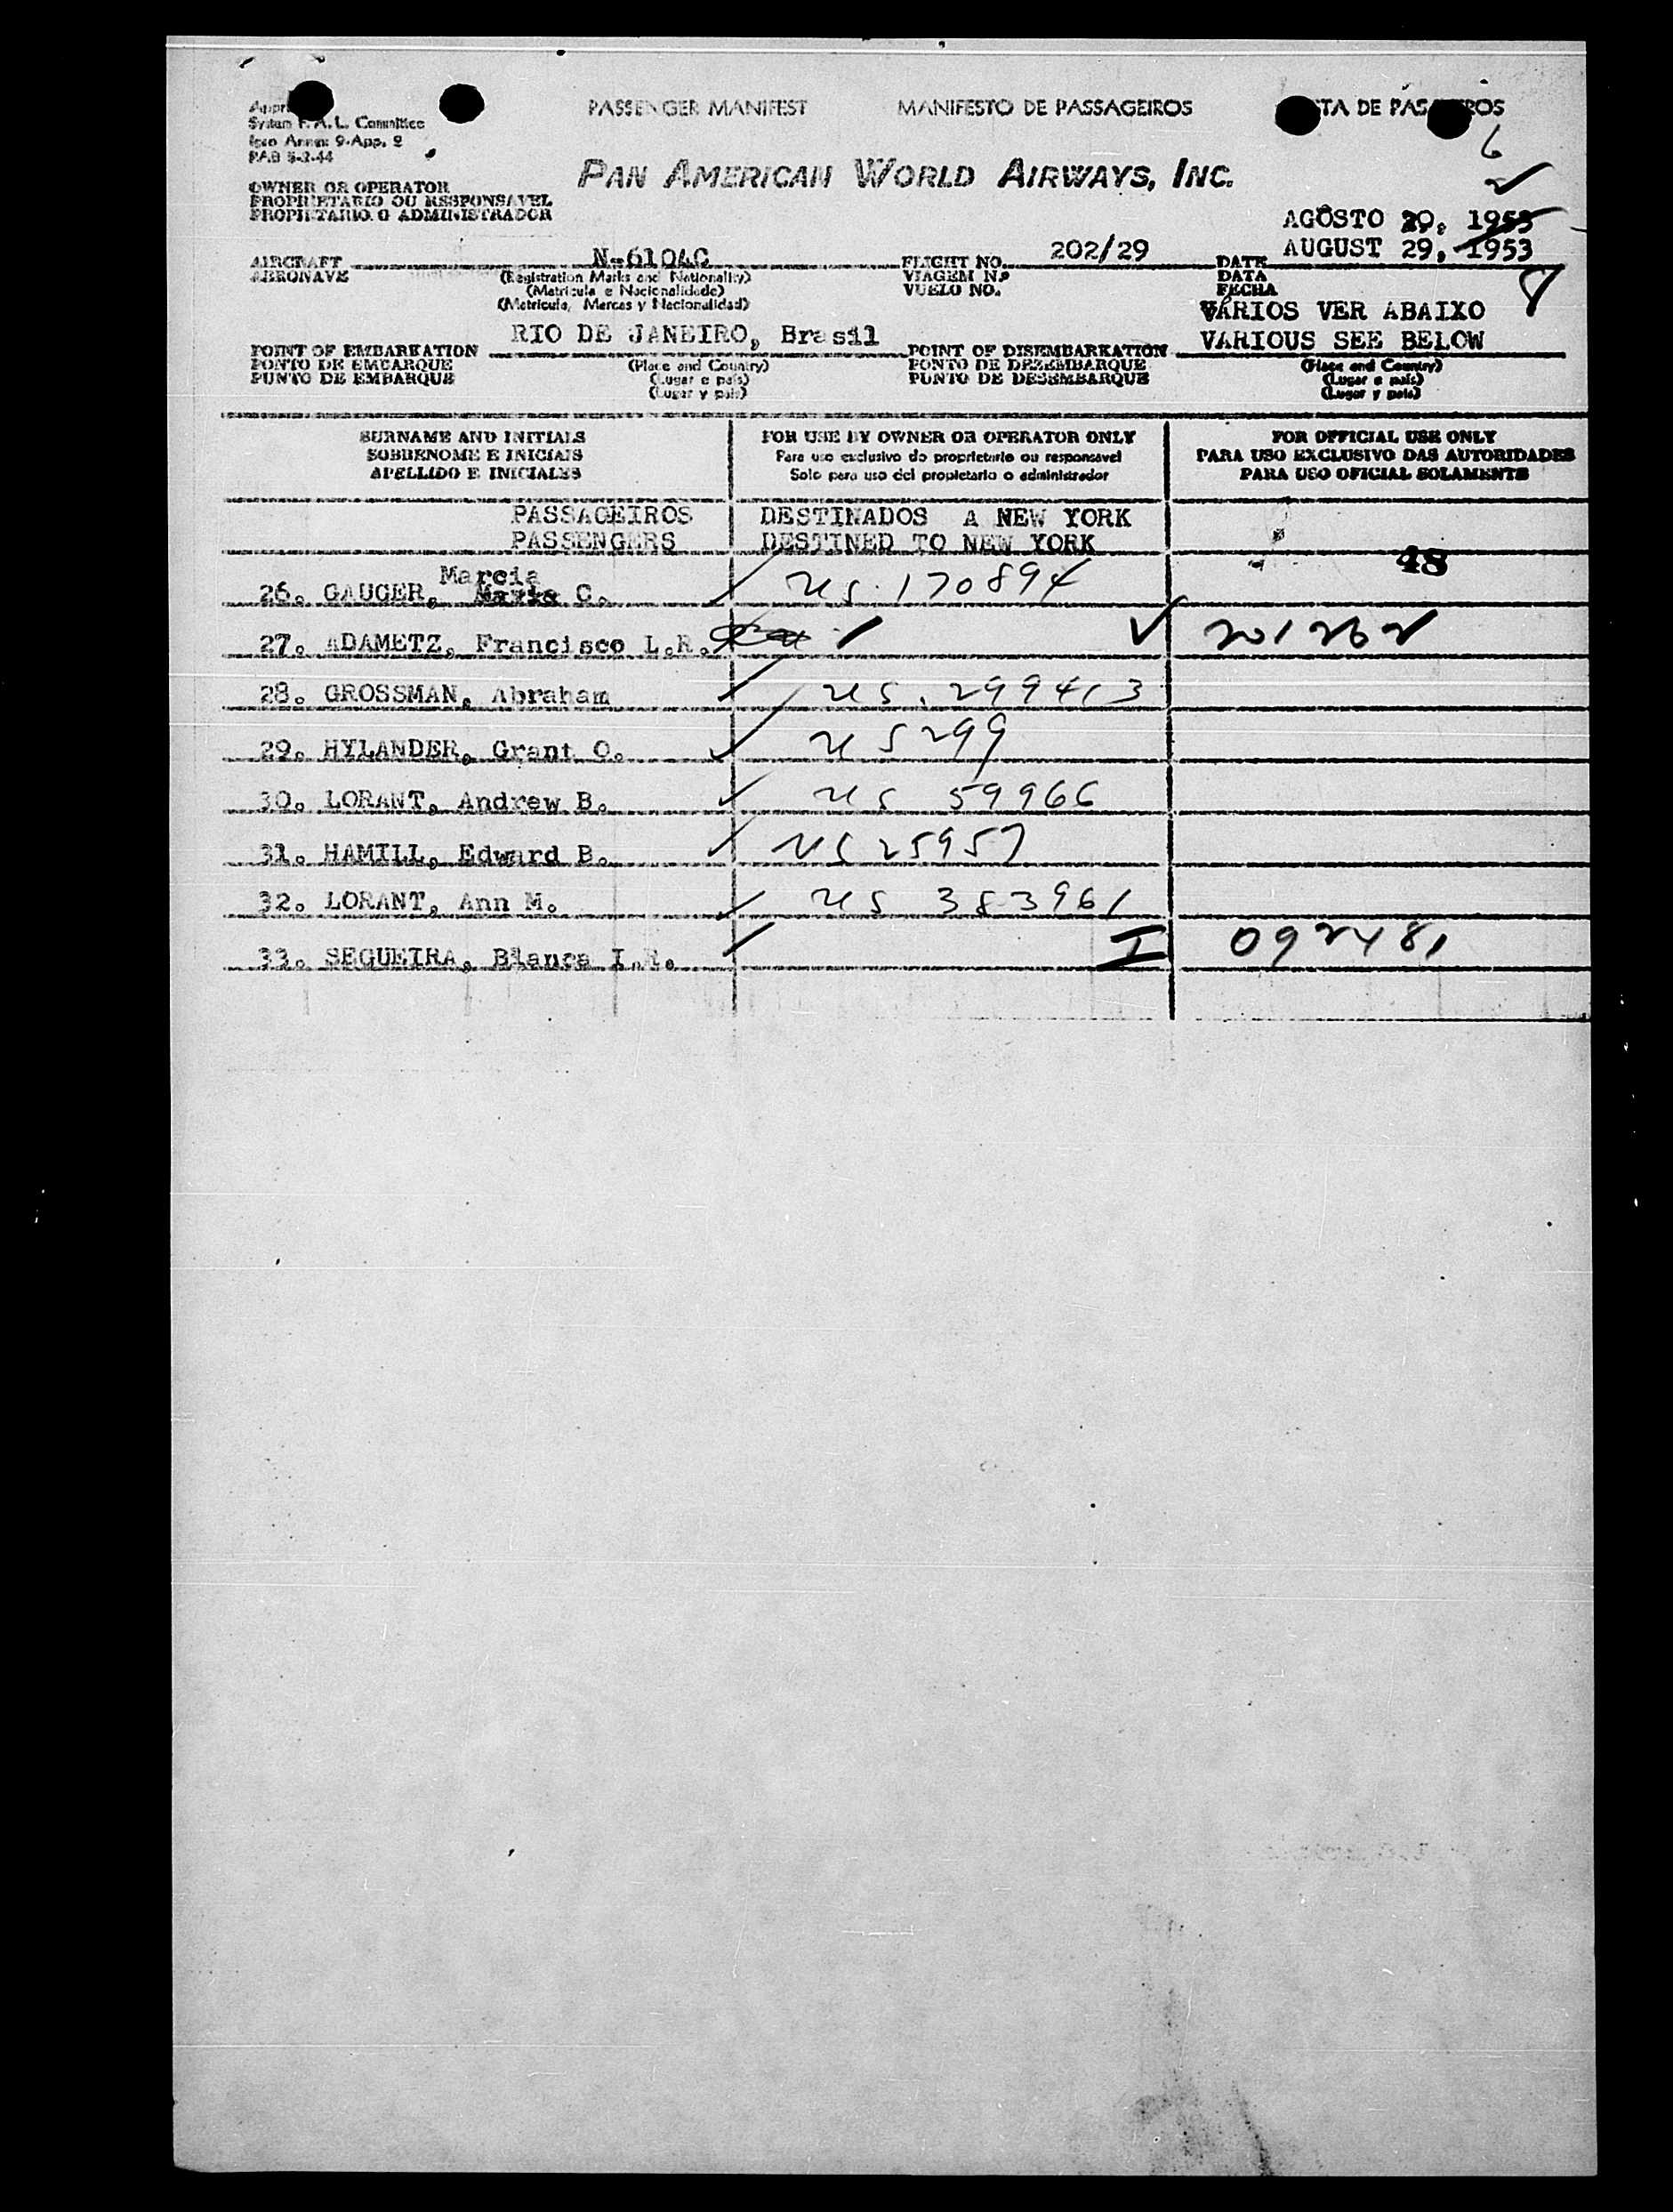 PASSENGER MANIFEST MANIFESTO DE PASSAGEIROS TA DE PAS ROS
System F. A. L. Committee
Icao Annex 9-App. 2
PAB 5-2-44
6
PAN AMERICAN WORLD AIRWAYS, INC.
OWNER OR OPERATOR
PROPRIETARIO OU RESPONSAVEL
PROPIETARIO O ADMINISTRADOR
AGÔSTO 29, 1953
AUGUST 29, 1953
AIRCRAFT N-6104C FLIGHT NO. 202/29 DATE
AERONAVE (Registration Marks and Nationality) VIAGEM N.º DATA
(Matricula e Nacionalidade) VUELO NO. FECHA
(Matricula, Marcas y Nacionalidad)
VÁRIOS VER ABAIXO
RIO DE JANEIRO, Brasil VARIOUS SEE BELOW
POINT OF EMBARKATION POINT OF DISEMBARKATION
PONTO DE EMBARQUE (Place and Country) PONTO DE DEZEMBARQUE (Place and Country)
PUNTO DE EMBARQUE (Lugar e pais) PUNTO DE DESEMBARQUE (Lugar e pais)
(Lugar y pais) (Lugar y pais)
SURNAME AND INITIALS FOR USE BY OWNER OR OPERATOR ONLY FOR OFFICIAL USE ONLY
SOBRENOME E INICIAIS Para uso exclusivo do proprietario ou responsavel PARA USO EXCLUSIVO DAS AUTORIDADES
APELLIDO E INICIALES Solo para uso del propietario o administrador PARA USO OFICIAL SOLAMENTE
PASSAGEIROS DESTINADOS A NEW YORK
PASSENGERS DESTINED TO NEW YORK
48
Marcia
26. GAUGER, Maria C. ✓ US. 170894
27. ADAMETZ, Francisco L.R. ✓ 201262
28. GROSSMAN, Abraham ✓ US. 299413
29. HYLANDER, Grant O. ✓ US 299
30. LORANT, Andrew B. ✓ US 59966
31. HAMILL, Edward B. ✓ US 25957
32. LORANT, Ann M. ✓ US 383961
33. SEGUEIRA, Blanca I.R. ✓ I 092481